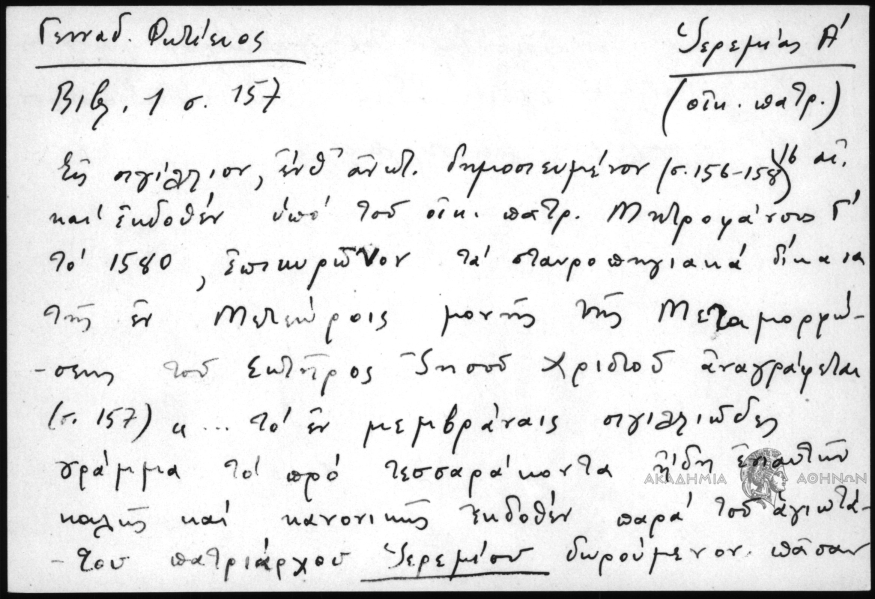 Γενναδ. Φωτίειος
Ἱερεμίας Α΄
Βιβλ. 1 σ. 157
(οἰκ. πατρ.)
Εἰς σιγίλλιον, ἔνθ' ἀνωτ. δημοσιευμένον (σ. 156-158) 16 αἰ.
καὶ ἐκδοθὲν ὑπὸ τοῦ οἰκ. πατρ. Μητροφάνους Γ΄
τὸ 1580, ἐπικυρῶνον τὰ σταυροπηγιακὰ δίκαια
τῆς ἐν Μετεώροις μονῆς τῆς Μεταμορφώ-
-σεως τοῦ Σωτῆρος Ἰησοῦ Χριστοῦ ἀναγράφεται
(σ. 157) « ... τὸ ἐν μεμβράναις σιγιλλιῶδες
γράμμα τὸ πρὸ τεσσαράκοντα ἤδη ἐνιαυτῶν
καλῶς καὶ κανονικῶς ἐκδοθὲν παρὰ τοῦ ἁγιωτά-
-του πατριάρχου Ἱερεμίου δωρούμενον πᾶσαν
ΑΚΑΔΗΜΙΑ ΑΘΗΝΩΝ